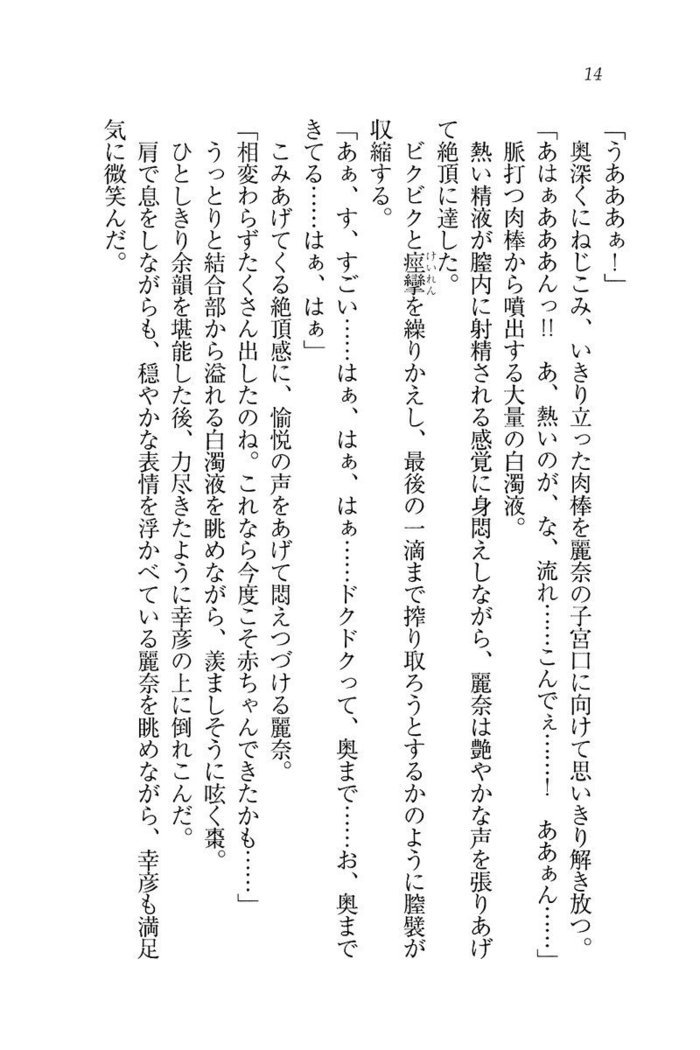 14
「うあああぁ！」
奥深くにねじこみ、いきり立った肉棒を麗奈の子宮口に向けて思いきり解き放つ。
「あはぁあああんっ!!　あ、熱いのが、な、流れ……こんでぇ……！　ああぁん……」
脈打つ肉棒から噴出する大量の白濁液。
熱い精液が膣内に射精される感覚に身悶えしながら、麗奈は艶やかな声を張りあげ
て絶頂に達した。
ビクビクと痙攣けいれんを繰りかえし、最後の一滴まで搾り取ろうとするかのように膣襞が
収縮する。
「あぁ、す、すごい……はぁ、はぁ、はぁ……ドクドクって、奥まで……お、奥まで
きてる……はぁ、はぁ」
こみあげてくる絶頂感に、愉悦の声をあげて悶えつづける麗奈。
「相変わらずたくさん出したのね。これなら今度こそ赤ちゃんできたかも……」
うっとりと結合部から溢れる白濁液を眺めながら、羨ましそうに呟く棗。
ひとしきり余韻を堪能した後、力尽きたように幸彦の上に倒れこんだ。
肩で息をしながらも、穏やかな表情を浮かべている麗奈を眺めながら、幸彦も満足
気に微笑んだ。